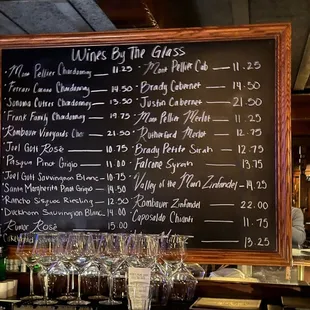 Wines By The Glass
Mon Pellier Chardonnay 11.25
Ferrari Carano Chardonnay 14.50
Sonoma Cutrer Chardonnay 13.50
Frank Family Chardonnay 19.75
Rombauer Vineyards Char 21.50
Joel Gott Rosé 10.75
Pasqua Pinot Grigio 11.00
Joel Gott Sauvignon Blanc 10.75
Santa Margherita Pinot Grigio 14.50
Rancho Sisquoc Riesling 12.25
Duckhorn Sauvignon Blanc 14.00
Rumor Rosé 15.00
Mont Pellier Cab 11.25
Brady Cabernet 14.50
Justin Cabernet 21.50
Mon Pellier Merlot 11.25
Rutherford Merlot 12.75
Brady Petite Sirah 12.75
Falcone Syrah 13.75
Valley of the Moon Zinfandel 14.25
Rombauer Zinfandel 22.00
Chianti 11.75
13.25